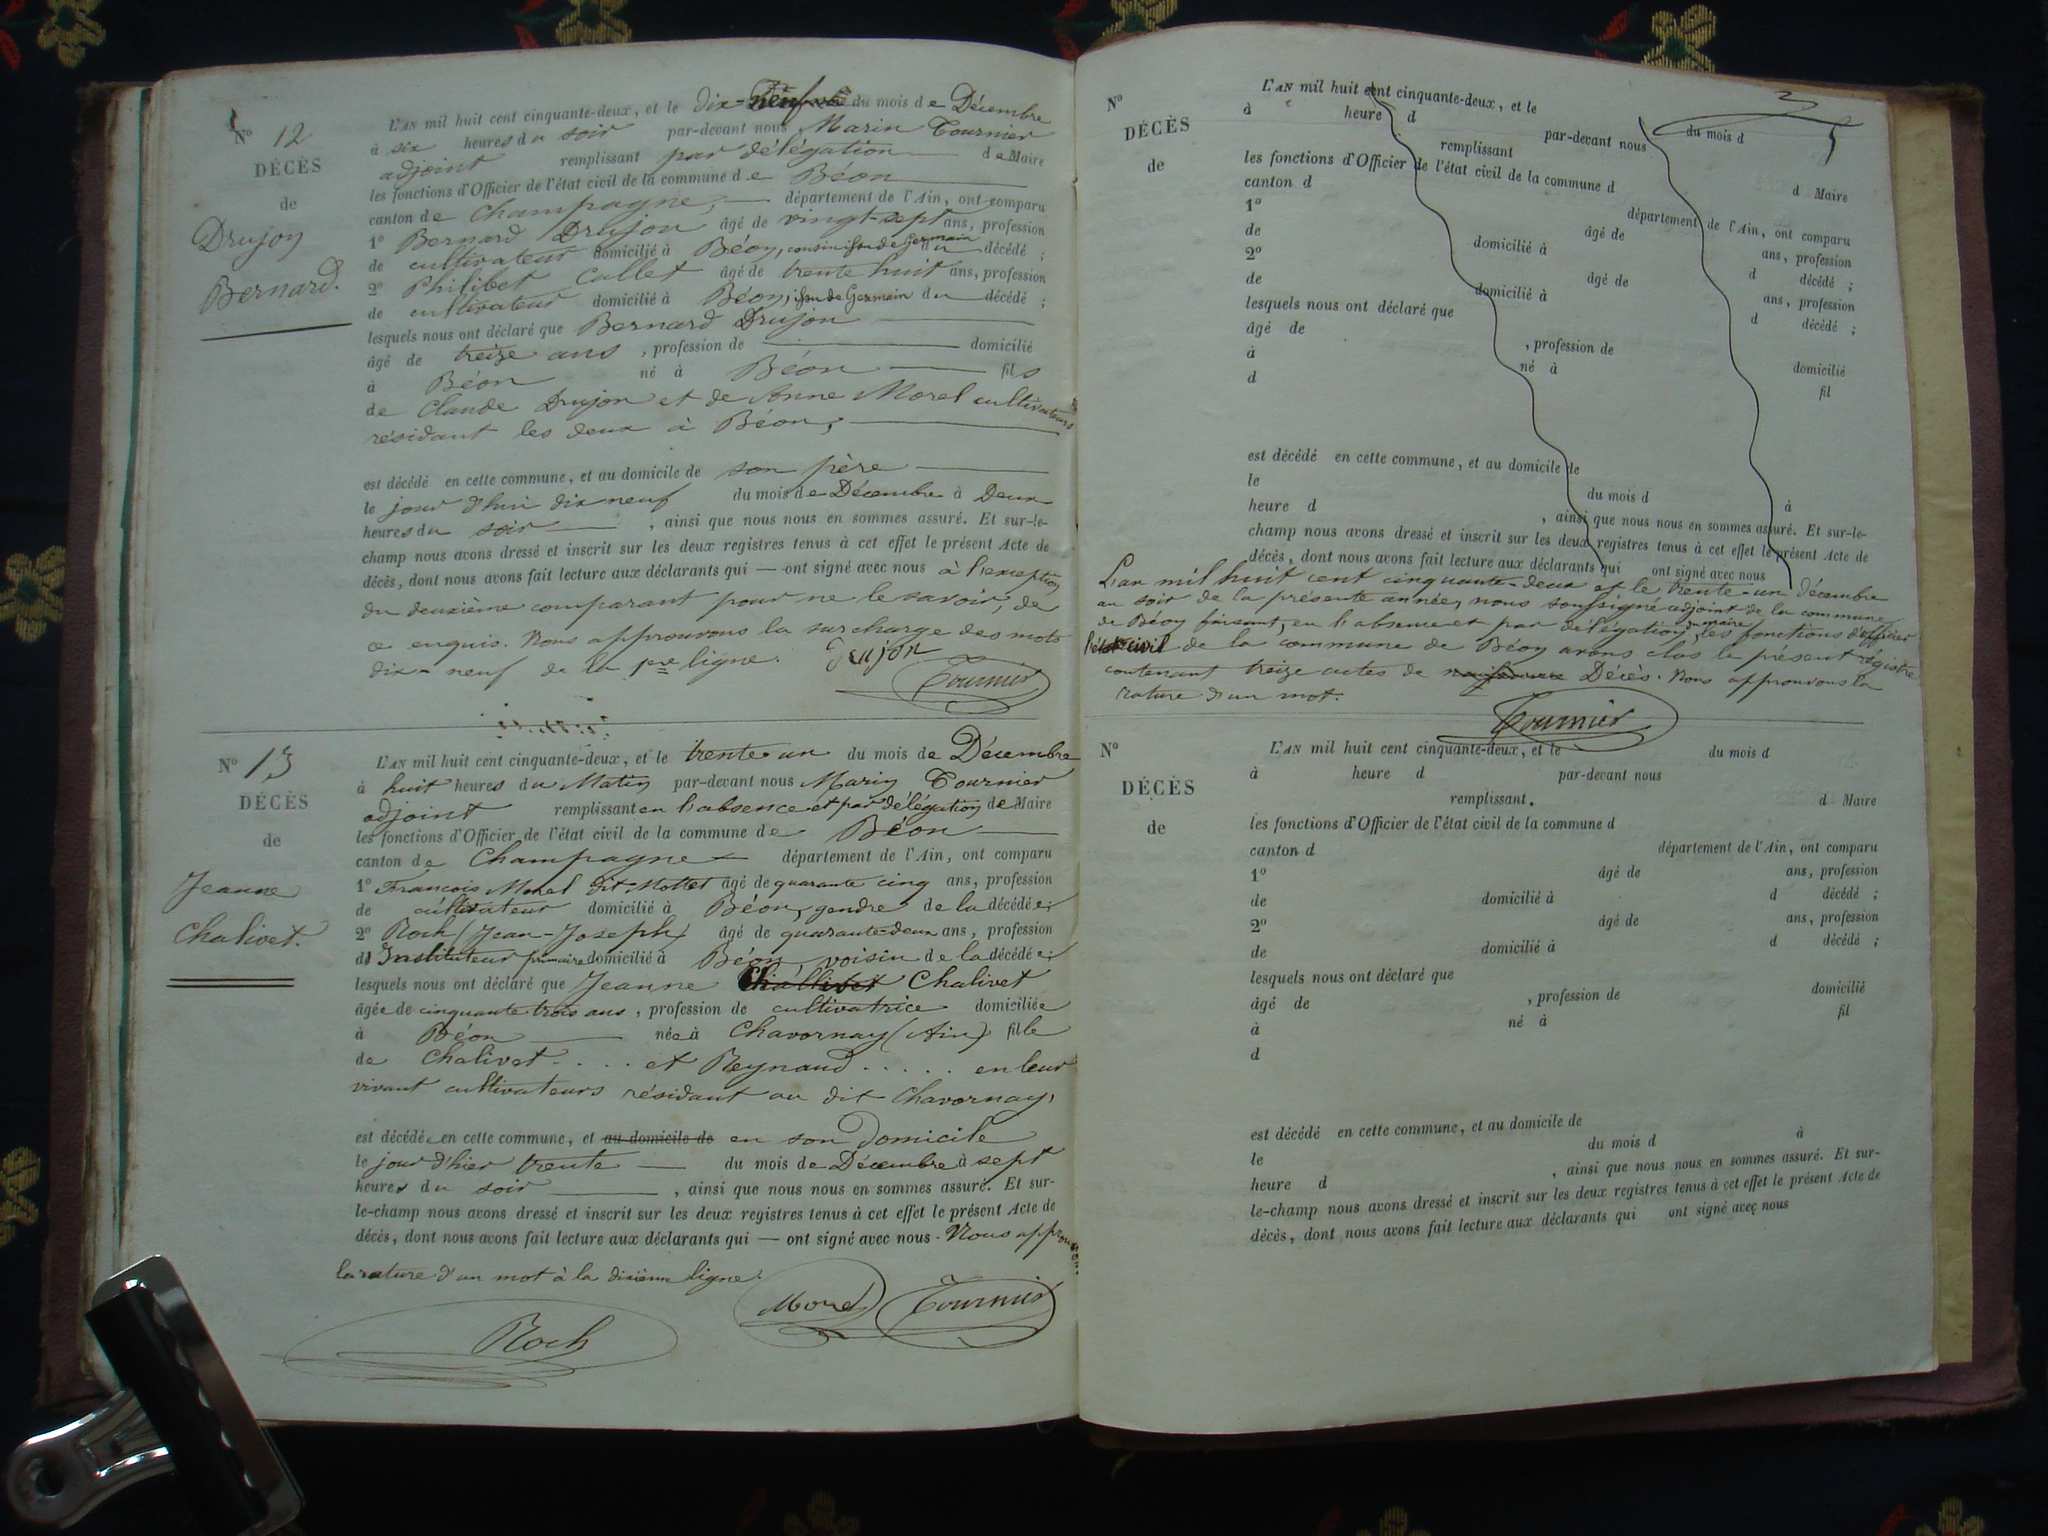 N° 12
DÉCÈS
de
Drujon
Bernard.
L'AN mil huit cent cinquante-deux, et le dix-neuf du mois de Décembre
à six heures du soir par-devant nous Marin Tournier
adjoint remplissant par délégation de Maire
les fonctions d'Officier de l'état civil de la commune de Béon
canton de Champagne, département de l'Ain, ont comparu
1° Bernard Drujon âgé de vingt-sept ans, profession
de cultivateur domicilié à Béon, cousin issu de Germain du décédé ;
2° Philibet Callet âgé de trente huit ans, profession
de cultivateur domicilié à Béon, issu de Germain du décédé ;
lesquels nous ont déclaré que Bernard Drujon
âgé de treize ans, profession de domicilié
à Béon né à Béon fils
de Claude Drujon et de Anne Morel cultivateurs
résidant les deux à Béon,
est décédé en cette commune, et au domicile de son père
le jour d'hui dix neuf du mois de Décembre à Deux
heures du soir, ainsi que nous nous en sommes assuré. Et sur-le-
champ nous avons dressé et inscrit sur les deux registres tenus à cet effet le présent Acte de
décès, dont nous avons fait lecture aux déclarants qui — ont signé avec nous à l'exception
du deuxième comparant pour ne le savoir, de
ce enquis. Nous approuvons la surcharge des mots
dix-neuf de la pre ligne. Drujon
Tournier
N° 13
DÉCÈS
de
Jeanne
Chalivet.
L'AN mil huit cent cinquante-deux, et le trente-un du mois de Décembre
à huit heures du Matin par-devant nous Marin Tournier
adjoint remplissant en l'absence et par délégation de Maire
les fonctions d'Officier de l'état civil de la commune de Béon
canton de Champagne département de l'Ain, ont comparu
1° François Morel dit Mottet âgé de quarante cinq ans, profession
de cultivateur domicilié à Béon, gendre de la décédée ;
2° Roch (Jean-Joseph) âgé de quarante-deux ans, profession
d'Instituteur primaire domicilié à Béon, voisin de la décédée ;
lesquels nous ont déclaré que Jeanne Challivet Chalivet
âgée de cinquante trois ans, profession de cultivatrice domiciliée
à Béon née à Chavornay (Ain) fille
de Chalivet.... et Reynaud..... en leur
vivant cultivateurs résidant au dit Chavornay,
est décédée en cette commune, et au domicile de en son domicile
le jour d'hier trente du mois de Décembre à sept
heures du soir, ainsi que nous nous en sommes assuré. Et sur-
le-champ nous avons dressé et inscrit sur les deux registres tenus à cet effet le présent Acte de
décès, dont nous avons fait lecture aux déclarants qui — ont signé avec nous. Nous approuvons
la rature d'un mot à la dixième ligne.
Roch Morel Tournier
N°
DÉCÈS
de
L'AN mil huit cent cinquante-deux, et le du mois d
à heure d par-devant nous
remplissant d Maire
les fonctions d'Officier de l'état civil de la commune d
canton d département de l'Ain, ont comparu
1° âgé de ans, profession
de domicilié à d décédé ;
2° âgé de ans, profession
de domicilié à d décédé ;
lesquels nous ont déclaré que
âgé de , profession de domicilié
à né à fil
d
est décédé en cette commune, et au domicile de
le du mois d à
heure d , ainsi que nous nous en sommes assuré. Et sur-le-
champ nous avons dressé et inscrit sur les deux registres tenus à cet effet le présent Acte de
décès, dont nous avons fait lecture aux déclarants qui ont signé avec nous
L'an mil huit cent cinquante-deux et le trente-un Décembre
au soir de la présente année, nous soussigné adjoint de la commune
de Béon faisant, en l'absence et par délégation du maire les fonctions d'officier
l'état civil de la commune de Béon avons clos le présent régistre
contenant treize actes de naissance Décès. Nous approuvons la
rature d'un mot.
Tournier
N°
DÉCÈS
de
L'AN mil huit cent cinquante-deux, et le du mois d
à heure d par-devant nous
remplissant. d Maire
les fonctions d'Officier de l'état civil de la commune d
canton d département de l'Ain, ont comparu
1° âgé de ans, profession
de domicilié à d décédé ;
2° âgé de ans, profession
de domicilié à d décédé ;
lesquels nous ont déclaré que
âgé de , profession de domicilié
à né à fil
d
est décédé en cette commune, et au domicile de
le du mois d à
heure d , ainsi que nous nous en sommes assuré. Et sur-
le-champ nous avons dressé et inscrit sur les deux registres tenus à cet effet le présent Acte de
décès, dont nous avons fait lecture aux déclarants qui ont signé avec nous